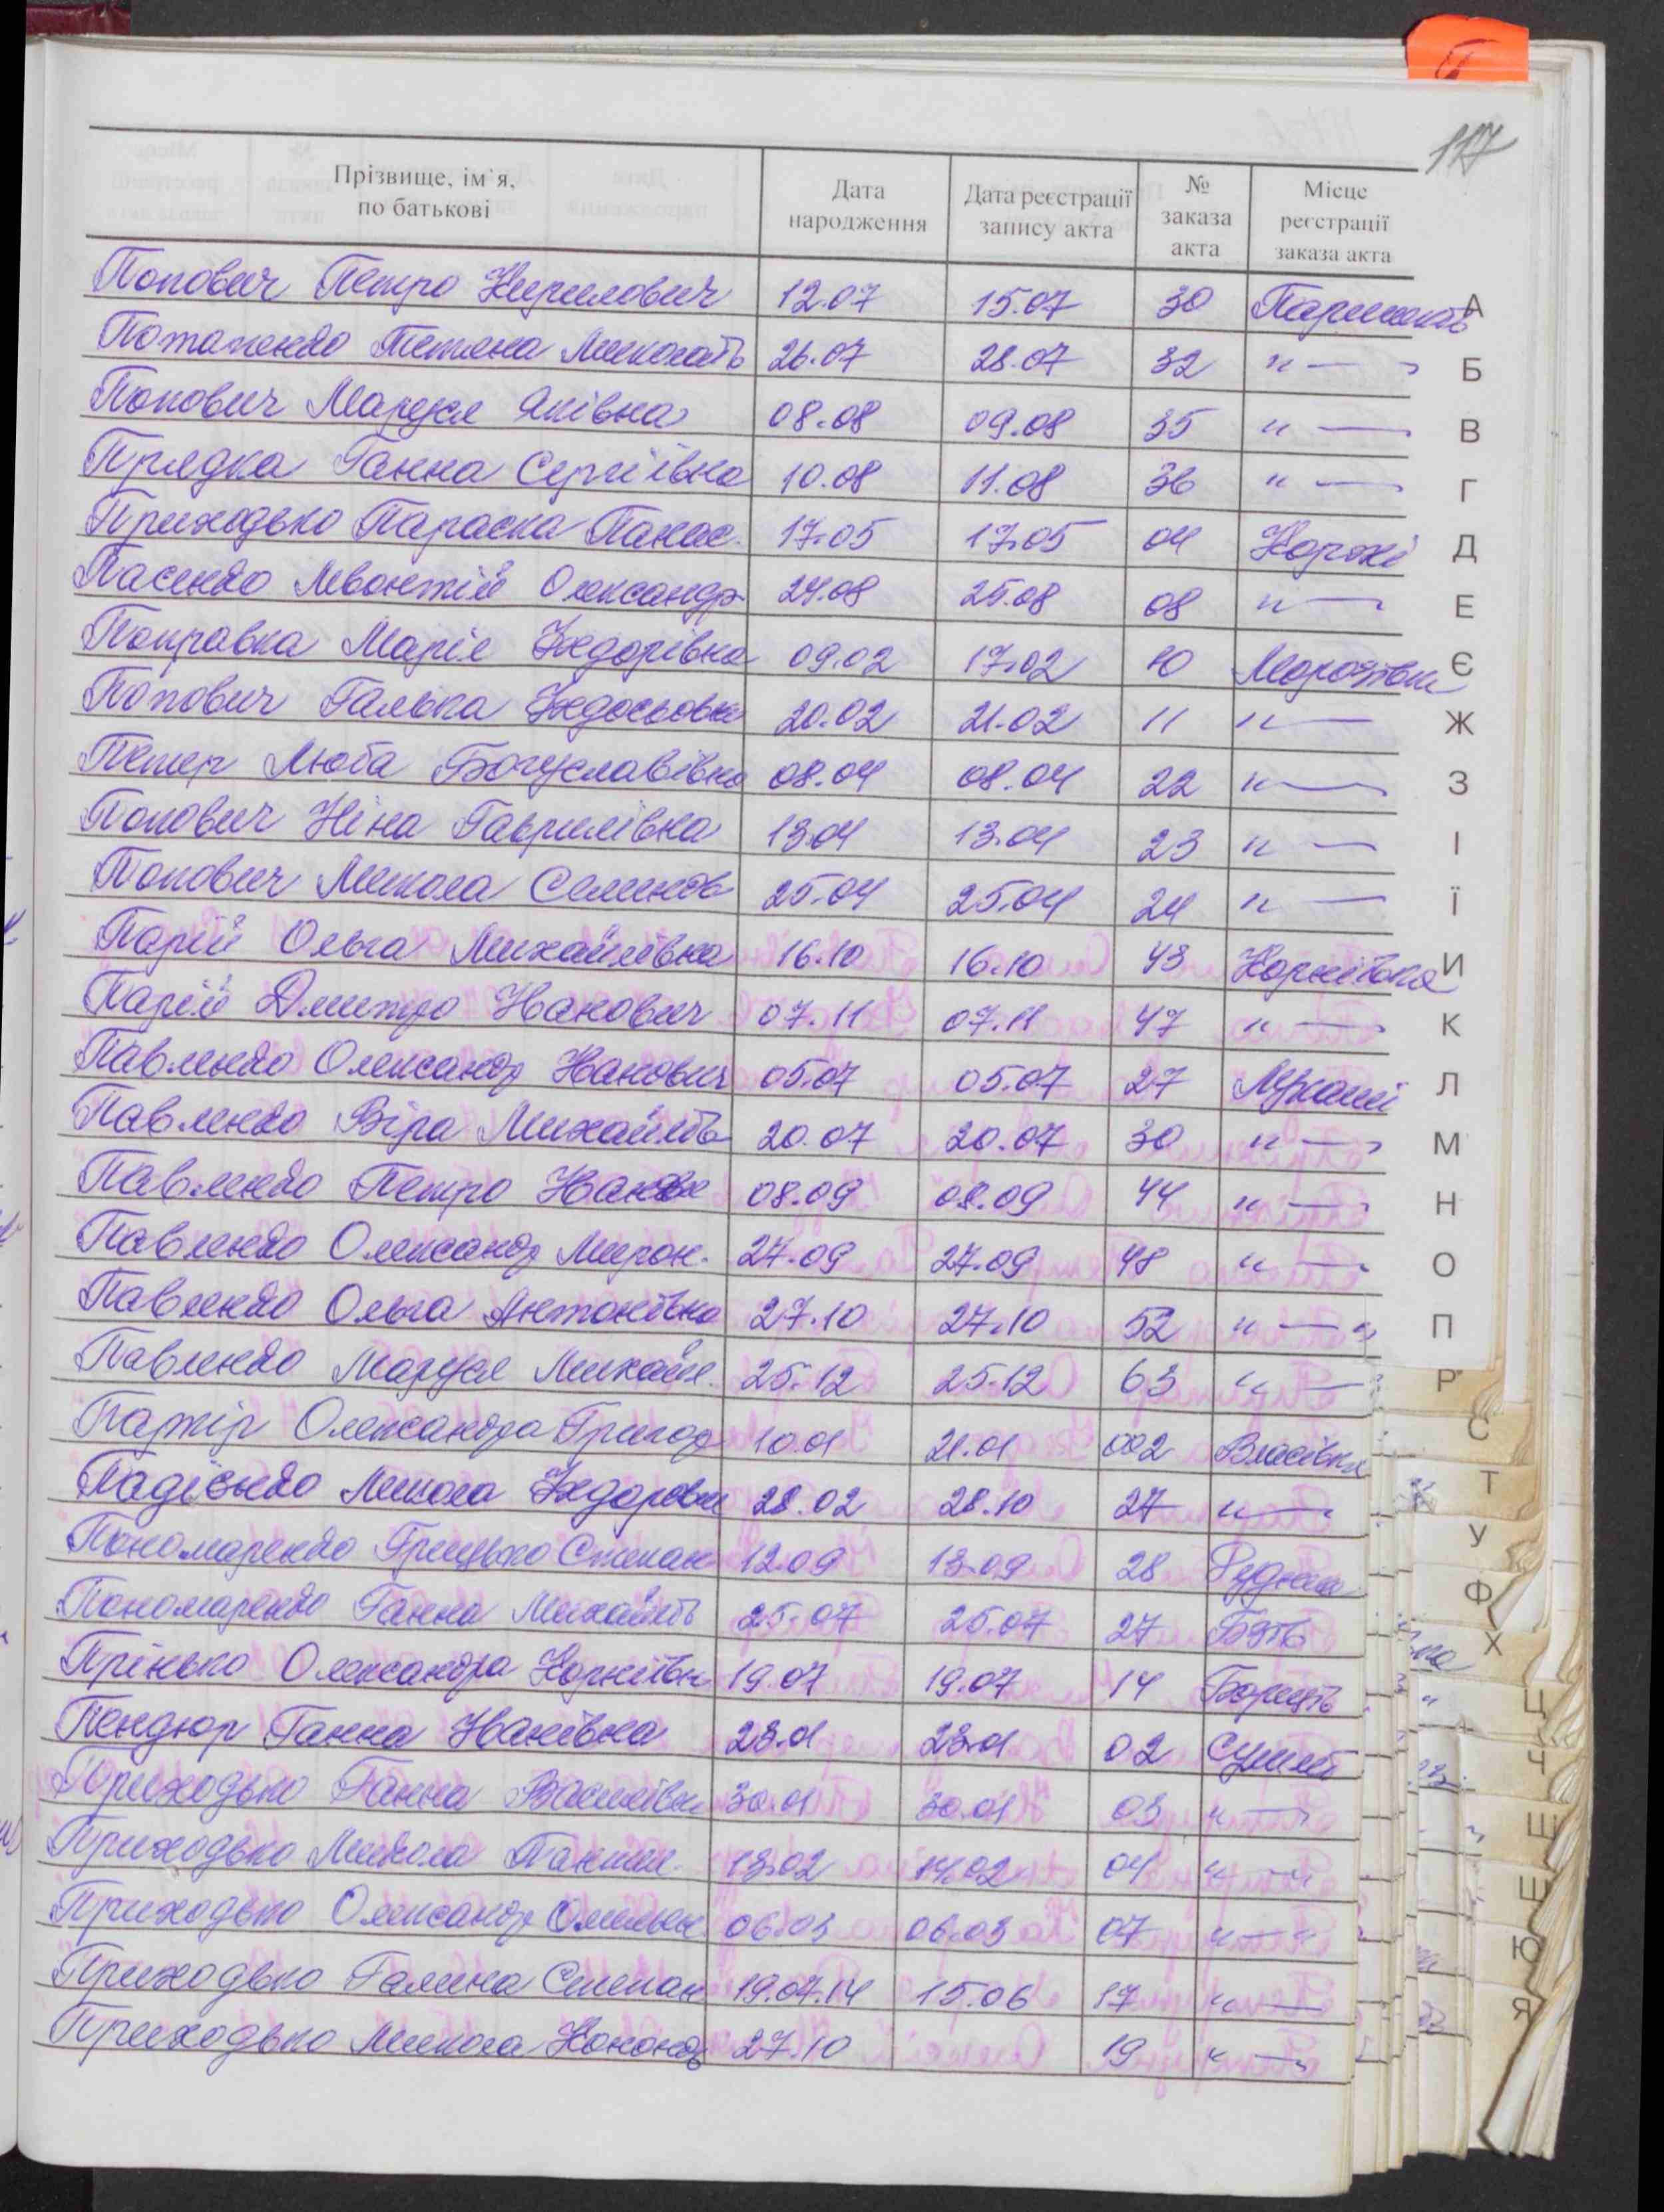 П
117
Прізвище, ім`я, по батькові Дата народження Дата реєстрації запису акта № заказа акта Місце реєстрації заказа акта
Попович Петро Кирилович 12.07 15.07 30 А
Потапенко Тетяна 26.07 28.07 32 "— Б
Попович Маруся Яківна 08.08 09.08 35 "— В
Прядка Ганна Сергіївна 10.08 11.08 36 "— Г
Приходько Параска Панас. 17.05 17.05 04 Коржі Д
Пасенко Левонтій Олександр. 24.08 25.08 08 "— Е
Поправка Марія Федорівна 09.02 17.02 10 Є
Попович Галька Федосьовна 20.02 21.02 11 "— Ж
Петер Люба Богуславівна 08.04 08.04 22 "— З
Попович Ніна Гаврилівна 13.04 13.04 23 "— І
Попович Микола Семенов 25.04 25.04 24 "— Ї
Парій Ольга Михайлівна 16.10 16.10 43 Корніївка И
Парій Дмитро Іванович 07.11 07.11 47 "— К
Павленко Олександр Іванович 05.07 05.07 27 Лукаші Л
Павленко Віра Михайлів 20.07 20.07 30 "— М
Павленко Петро 08.09 08.09 44 "— Н
Павленко Олександр Мирон. 27.09 27.09 48 "— О
Павленко Ольга Антонівна 27.10 27.10 52 "—" П
Павленко Маруся Михайл. 25.12 25.12 63 "— Р
Олександра Григор 10.01 21.01 002 Власівка С
Микола 28.02 28.10 27 "— Т
Пономаренко Грицько Степан 12.09 13.09 28 У
Пономаренко Ганна Михайлів 25.07 25.07 27 Ф
Прінько Олександра Корніївн 19.07 19.07 14 Х
Пендюр Ганна Іванівна 23.01 23.01 02 Ц
Приходько Ганна Василівн 30.01 30.01 03 "— Ч
Приходько Микола 13.02 14.02 04 "—" Ш
Приходько Олександр Омельян 06.03 06.03 07 "—" Щ
Приходько Галина Степан 19.04.14 15.06 17 "— Ю
Приходько Микола Конон 27.10 19 "— Я